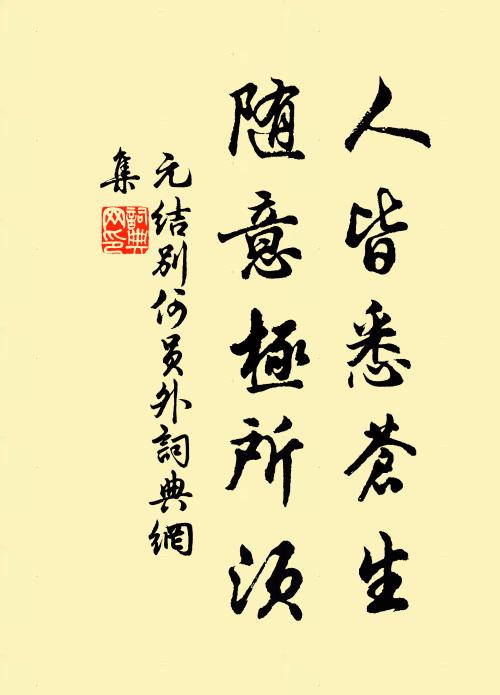 人皆悉蒼生
随意極所須
元结别何员外詞典網
集
詞典
网印